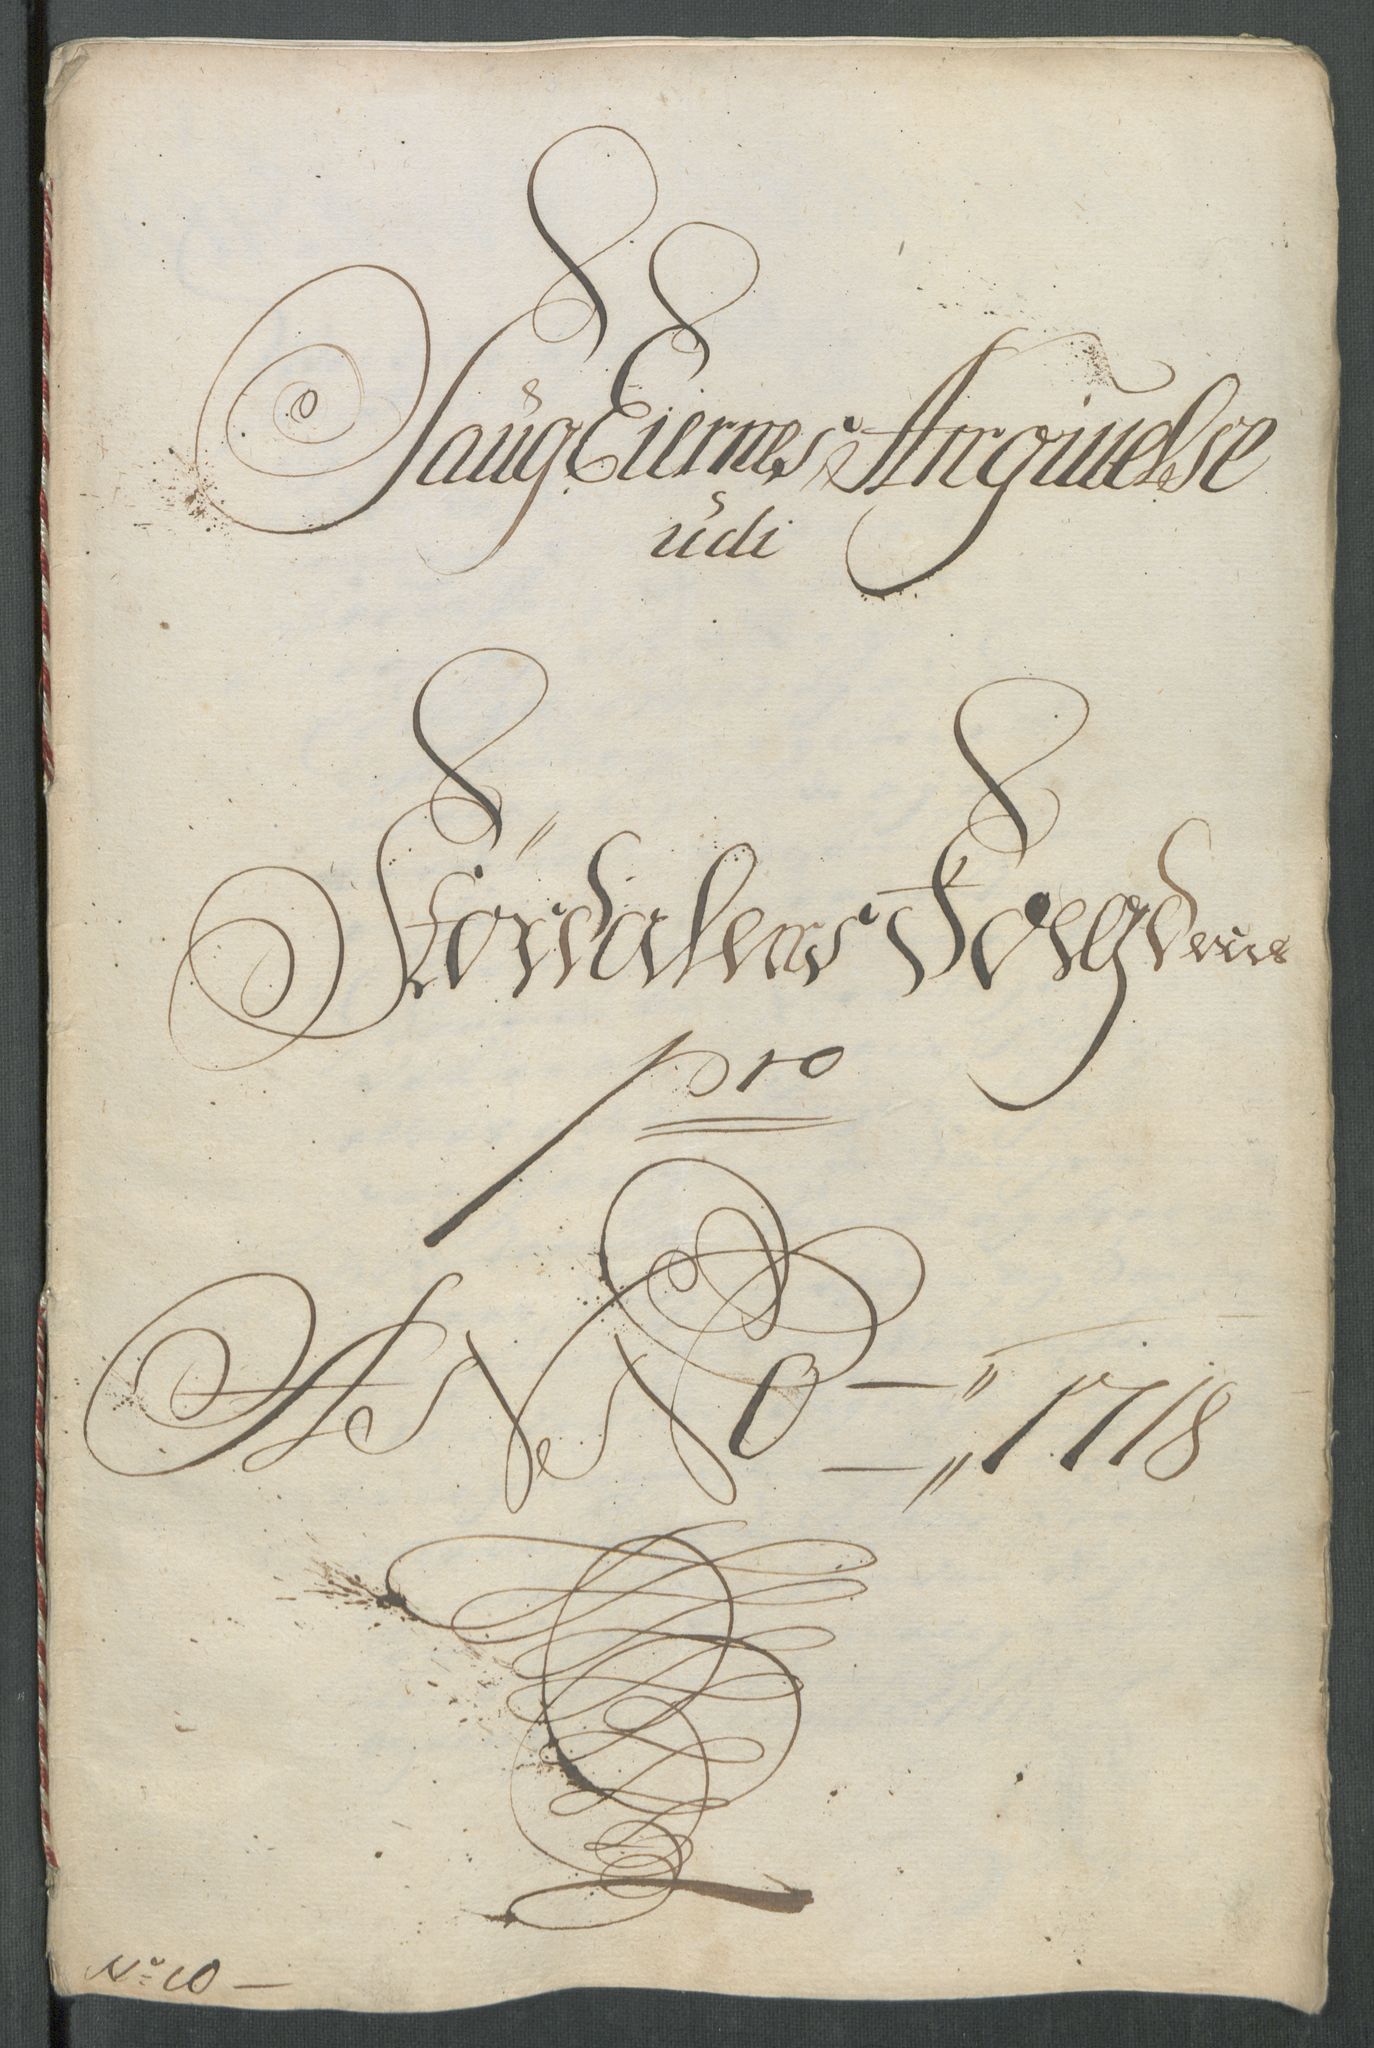 Saug Eiernes Angiuelse
udi
Størdalens Fogderie
pro
ANNO — 1718
No 10 —